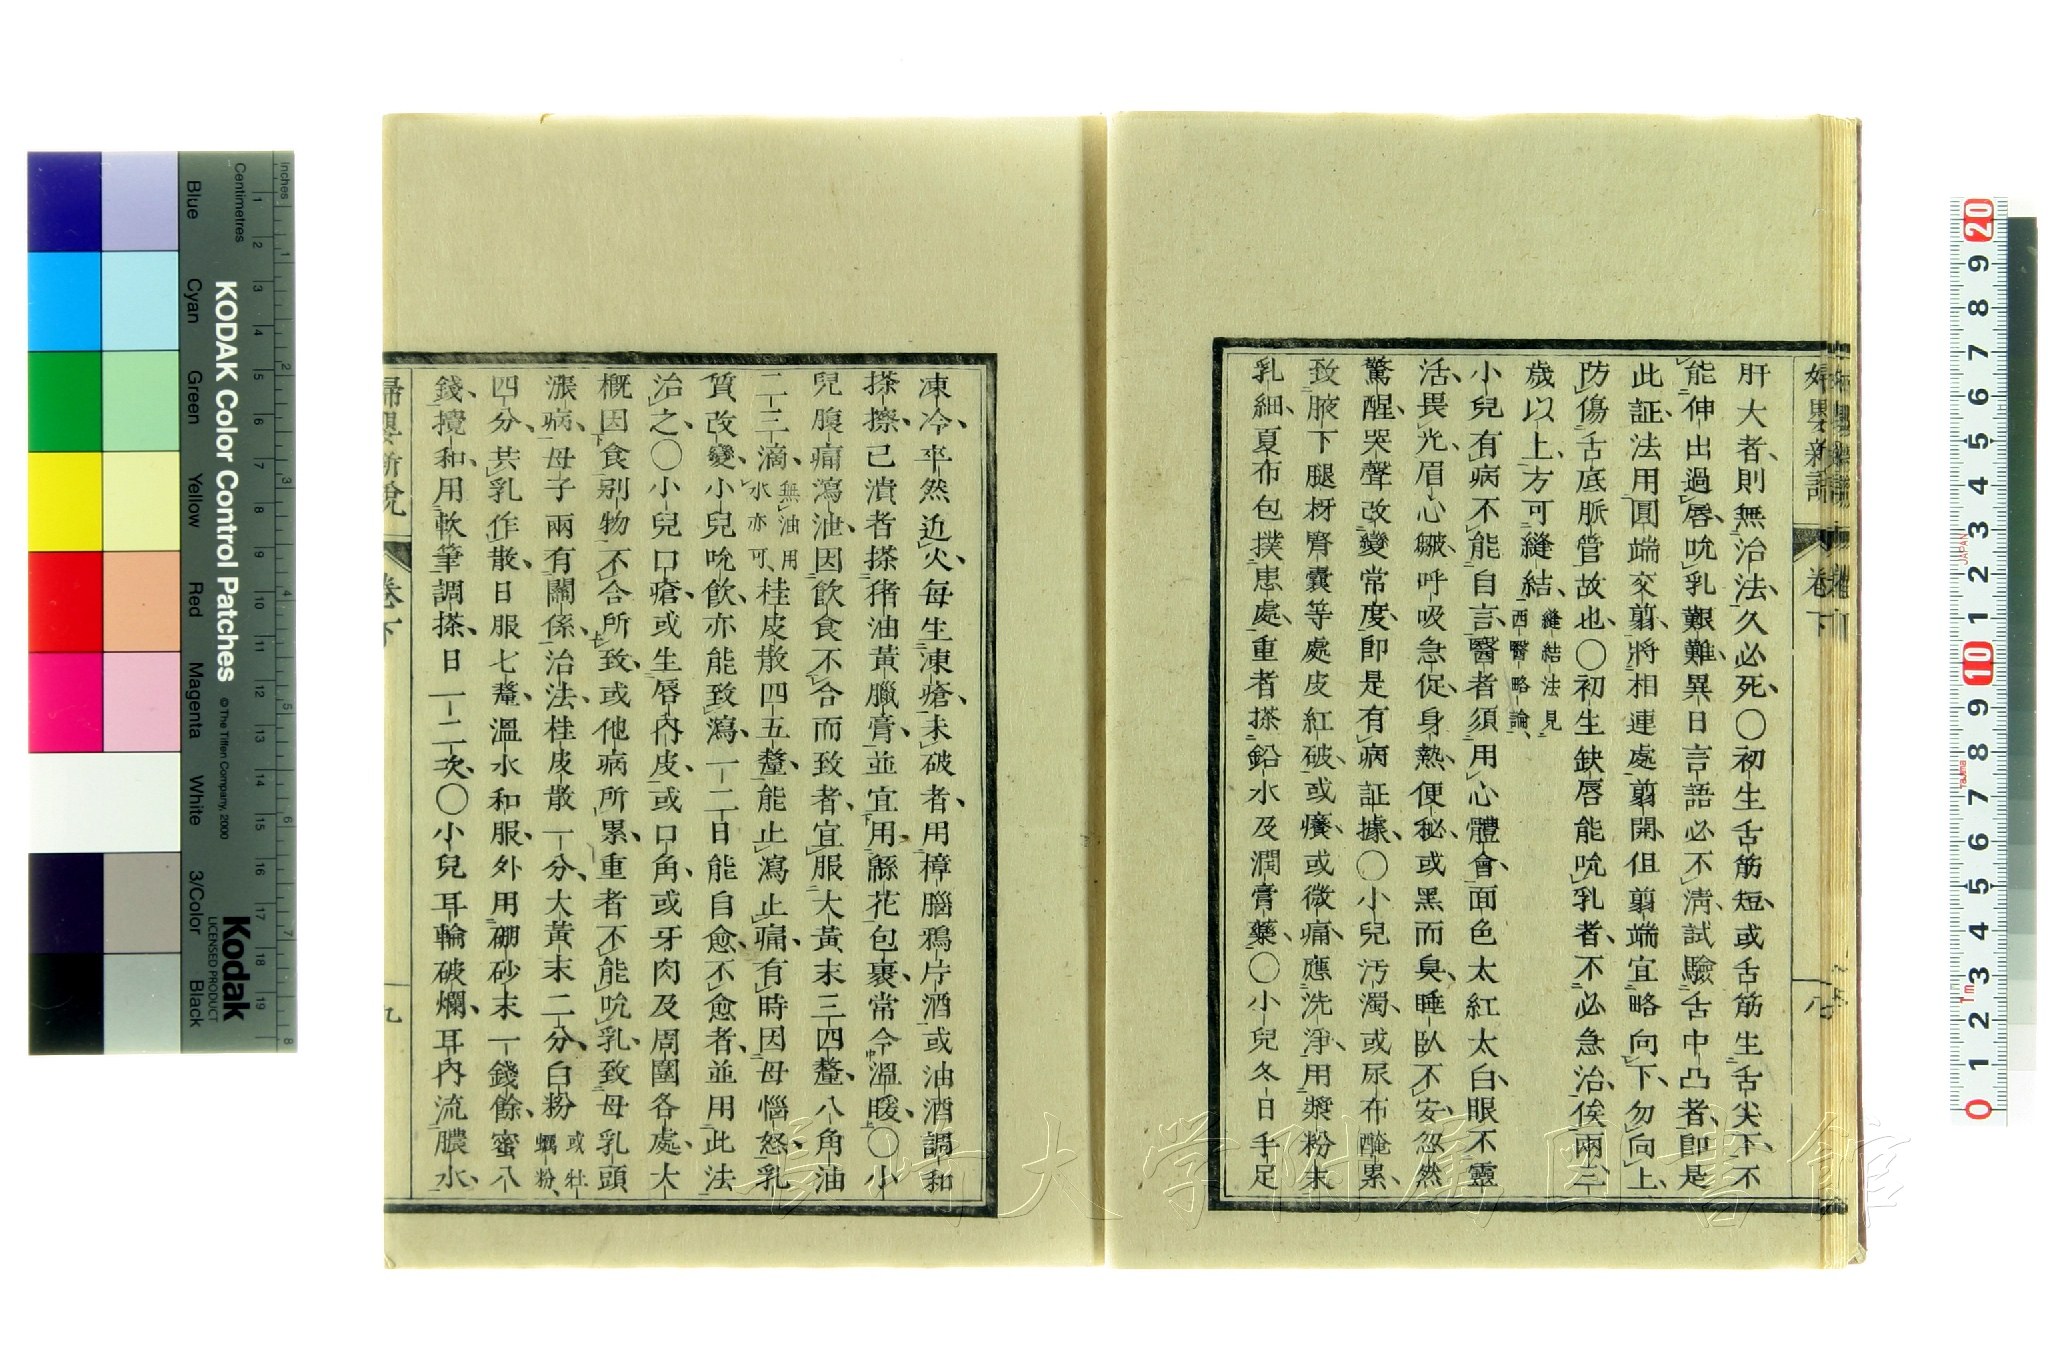 肝大者則無治法久必死〇初生舌筋短或舌筋生舌尖下不
能伸出過唇吮乳艱難異日言語必不清試驗舌中凸者即是
此証法用圓端交剪將相連處剪開但剪端宜略向下勿向上
防傷舌底脈管故也〇初生缺唇能吮乳者不必急治俟兩三
歲以上方可縫結縫結法見西醫略論
小兒有病不能自言醫者須用心體會面色太紅太白眼不靈
活畏光眉心皺呼吸急促身熱便秘或黑而臭睡臥不安忽然
驚醒哭聲改變常度即是有病証據〇小兒汚濁或尿布醃累
致腋下腿枒腎囊等處皮紅破或癢或微痛應洗淨用漿粉末
乳細夏布包撲患處重者搽鉛水及潤膏藥〇小兒冬日手足
卷下
八
凍冷卒然近火每生凍瘡未破者用樟腦鴉片酒或油酒調和
搽擦已潰者搽猪油黃臘膏並宜用緜花包裹常令溫暖〇小
兒腹痛瀉泄因飲食不合而致者宜服大黃末三四釐八角油
二三滴無油用水亦可桂皮散四五釐能止瀉止痛有時因母惱怒乳
質改變小兒吮飲亦能致瀉一二日能自愈不愈者並用此法
治之〇小兒口瘡或生唇內皮或口角或牙肉及周圍各處大
概因食别物不合所致或他病所累重者不能吮乳致母乳頭
漲病母子兩有關係治法桂皮散一分大黃末二分白粉或牡蠣粉
四分共乳作散日服七釐溫水和服外用硼砂末一錢餘蜜八
錢攪和用軟筆調搽日一二次〇小兒耳輪破爛耳內流膿水
婦嬰新說
卷下
九
KODAK Color Control Patches
© The Tiffen Company, 2000
Kodak
LICENSED PRODUCT
Inches
Centimetres
Blue
Cyan
Green
Yellow
Red
Magenta
White
3/Color
Black
JAPAN
Tajima
長崎大学附属図書館